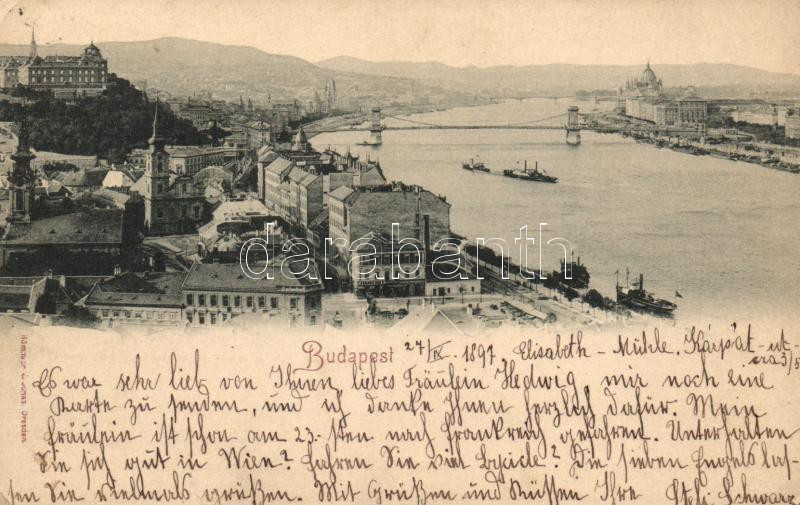 darabanth
Budapest 24/IX. 1897 Elisabeth - Mühle. Kárpát-ut-
cza 3/5
Es war sehr lieb von Ihnen liebes Fräulein Hedwig mir noch eine
Karte zu senden, und ich danke Ihnen herzlich dafür. Mein
Fräulein ist schon am 23-sten nach Frankreich gefahren. Unterhalten
Sie sich gut in Wien? Fahren Sie viel Bycicle? Die sieben Engels las-
sen Sie vielmals grüßen. Mit Grüßen und Küssen Ihre Steli Schwarz
Römmler & Jonas, Dresden